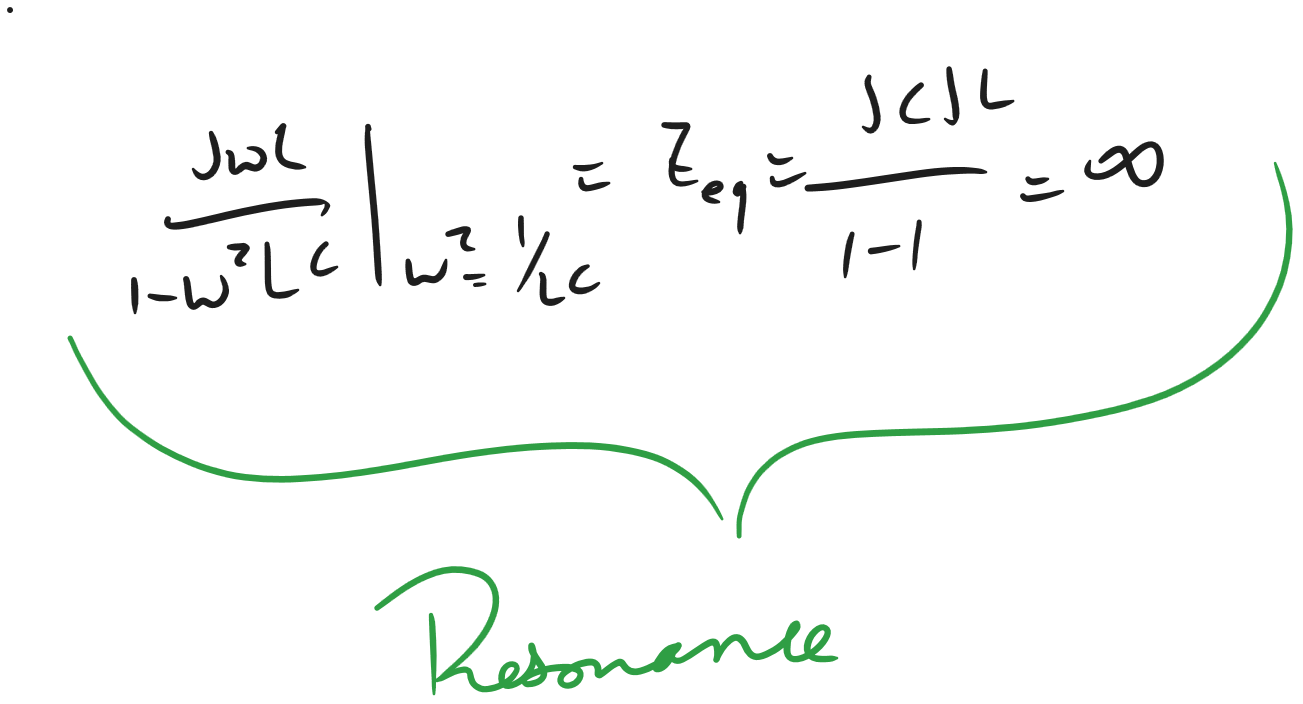 jωL / 1-ω²LC | ω²=1/LC = Zeq = ∫C∫L / 1-1 = ∞
Resonance